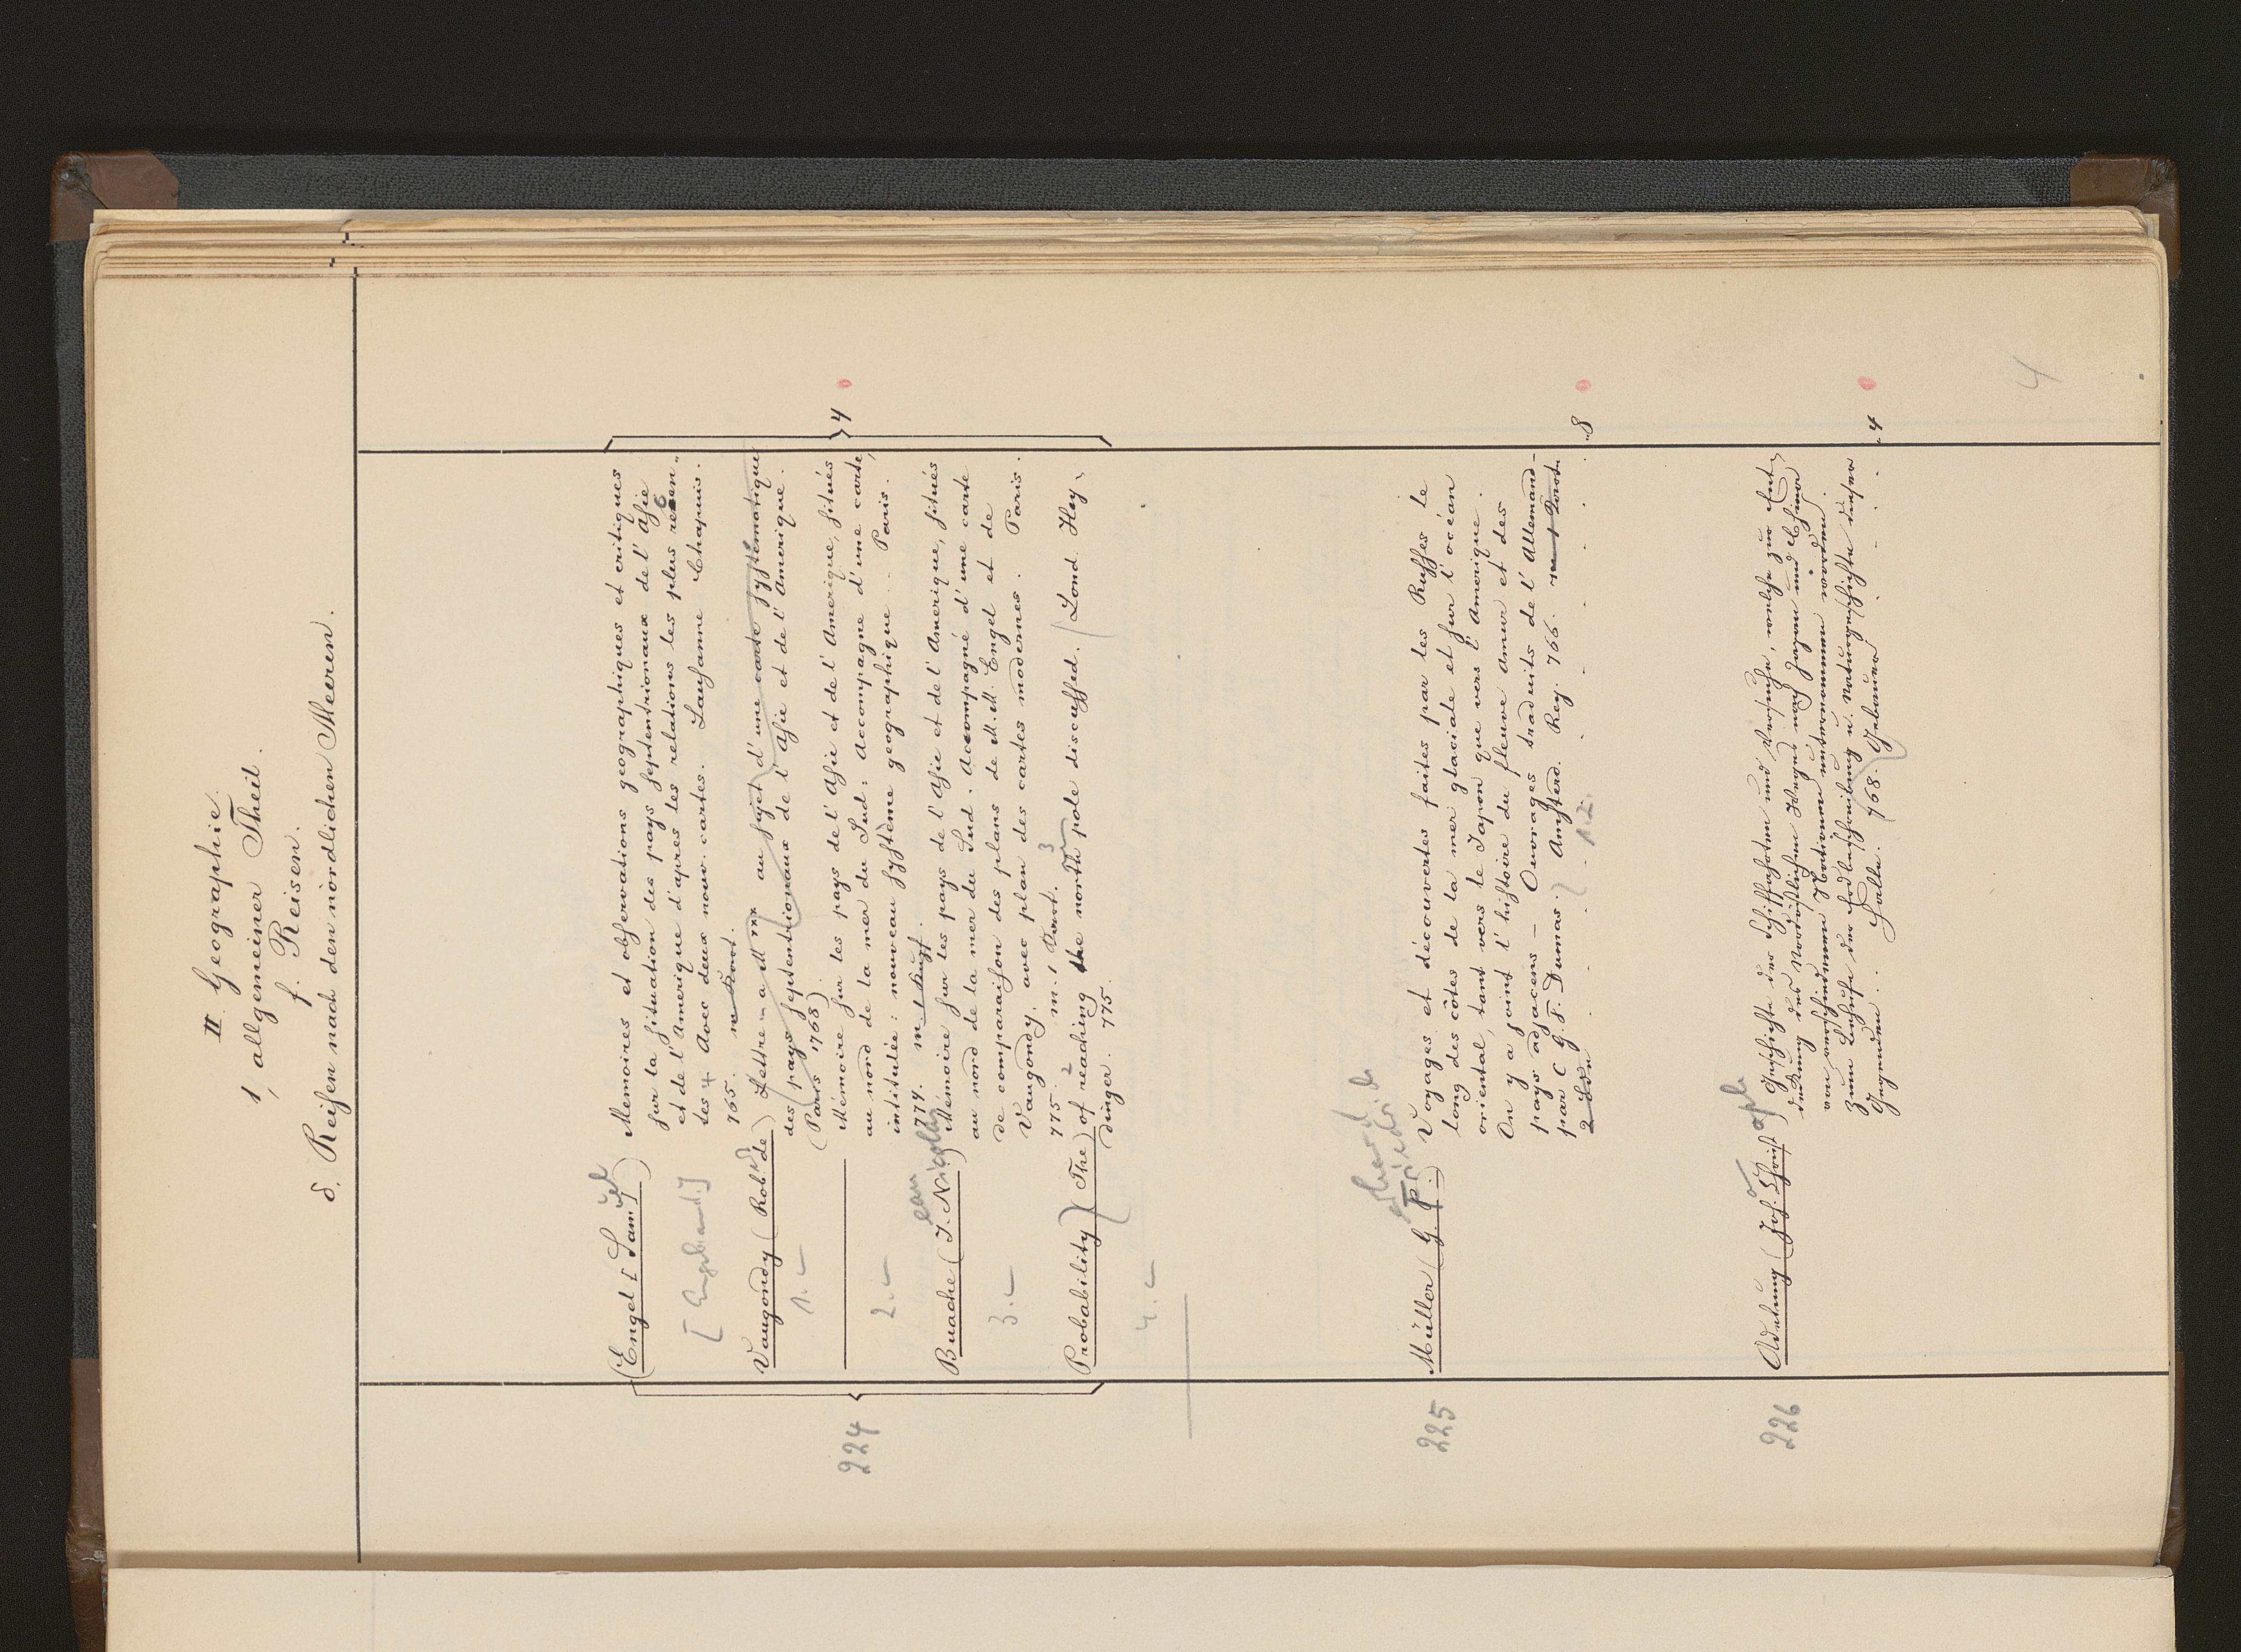 II Geographie.
1, allgemeiner Theil.
f. Reisen.
δ. Reisen nach den nördlichen Meeren.
224
(Engel [Samuel]) Memoires et observations geographiques et critiques
sur la situation des pays septentrionaux de l'Asie
et de l'Amerique d'apres les relations les plus recen-
tes + Avec deux nouv. cartes. Lausanne Chapuis.
765. m Kart.
4
[Engelband.]
Vaugondy (Rob. de) Lettre a M *** au sujet d'une carte systématique
des pays septentrionaux de l'Asie et de l'Amerique.
(Paris 1768)
1.
Mémoire sur les pays de l'Asie et de l'Amerique, situés
au nord de la mer du Sud: Accompagne d'une carte,
intitulée: nouveau système geographique.. Paris.
774. m. 1 Kupf.
2.
Buache (Jean Nicolas) Mémoire sur les pays de l'Asie et de l'Amerique, situés
au nord de la mer du Sud. Accompagné d'une carte
de comparaison des plans de M.M. Engel et de
Vaugondy. avec plan des cartes modernes. Paris.
775. m. 1 Kart.
3.
Probability (The) of reaching the north pole discussed. Lond. Hey-
dinger. 775.
4.
225
Müller (Gerhard Friedrich) Voyages et découvertes faites par les Russes le
long des côtes de la mer glaciale et sur l'océan
oriental, tant vers le Japon que vers l'Amerique.
On y a joint l'histoire du fleuve Amur et des
pays adjacens – Ouvrages traduits de l'Allemand-
par C. G. F. Dumas. Amsterd. Rey. 766. m 1 Kart.
2 Bde
1.2.
8
226
Adelung (Joh. Christoph) Geschichte der Schiffahrten und Versuche, welche zur Ent-
deckung des Nordöstlichen Weges nach Japan und China
von verschiedenen Nationen unternommen worden.
Zum Behufe der Erdbeschreibung u. Naturgeschichte dieser
Gegenden.. Halle. 768. Gebauer
4
4